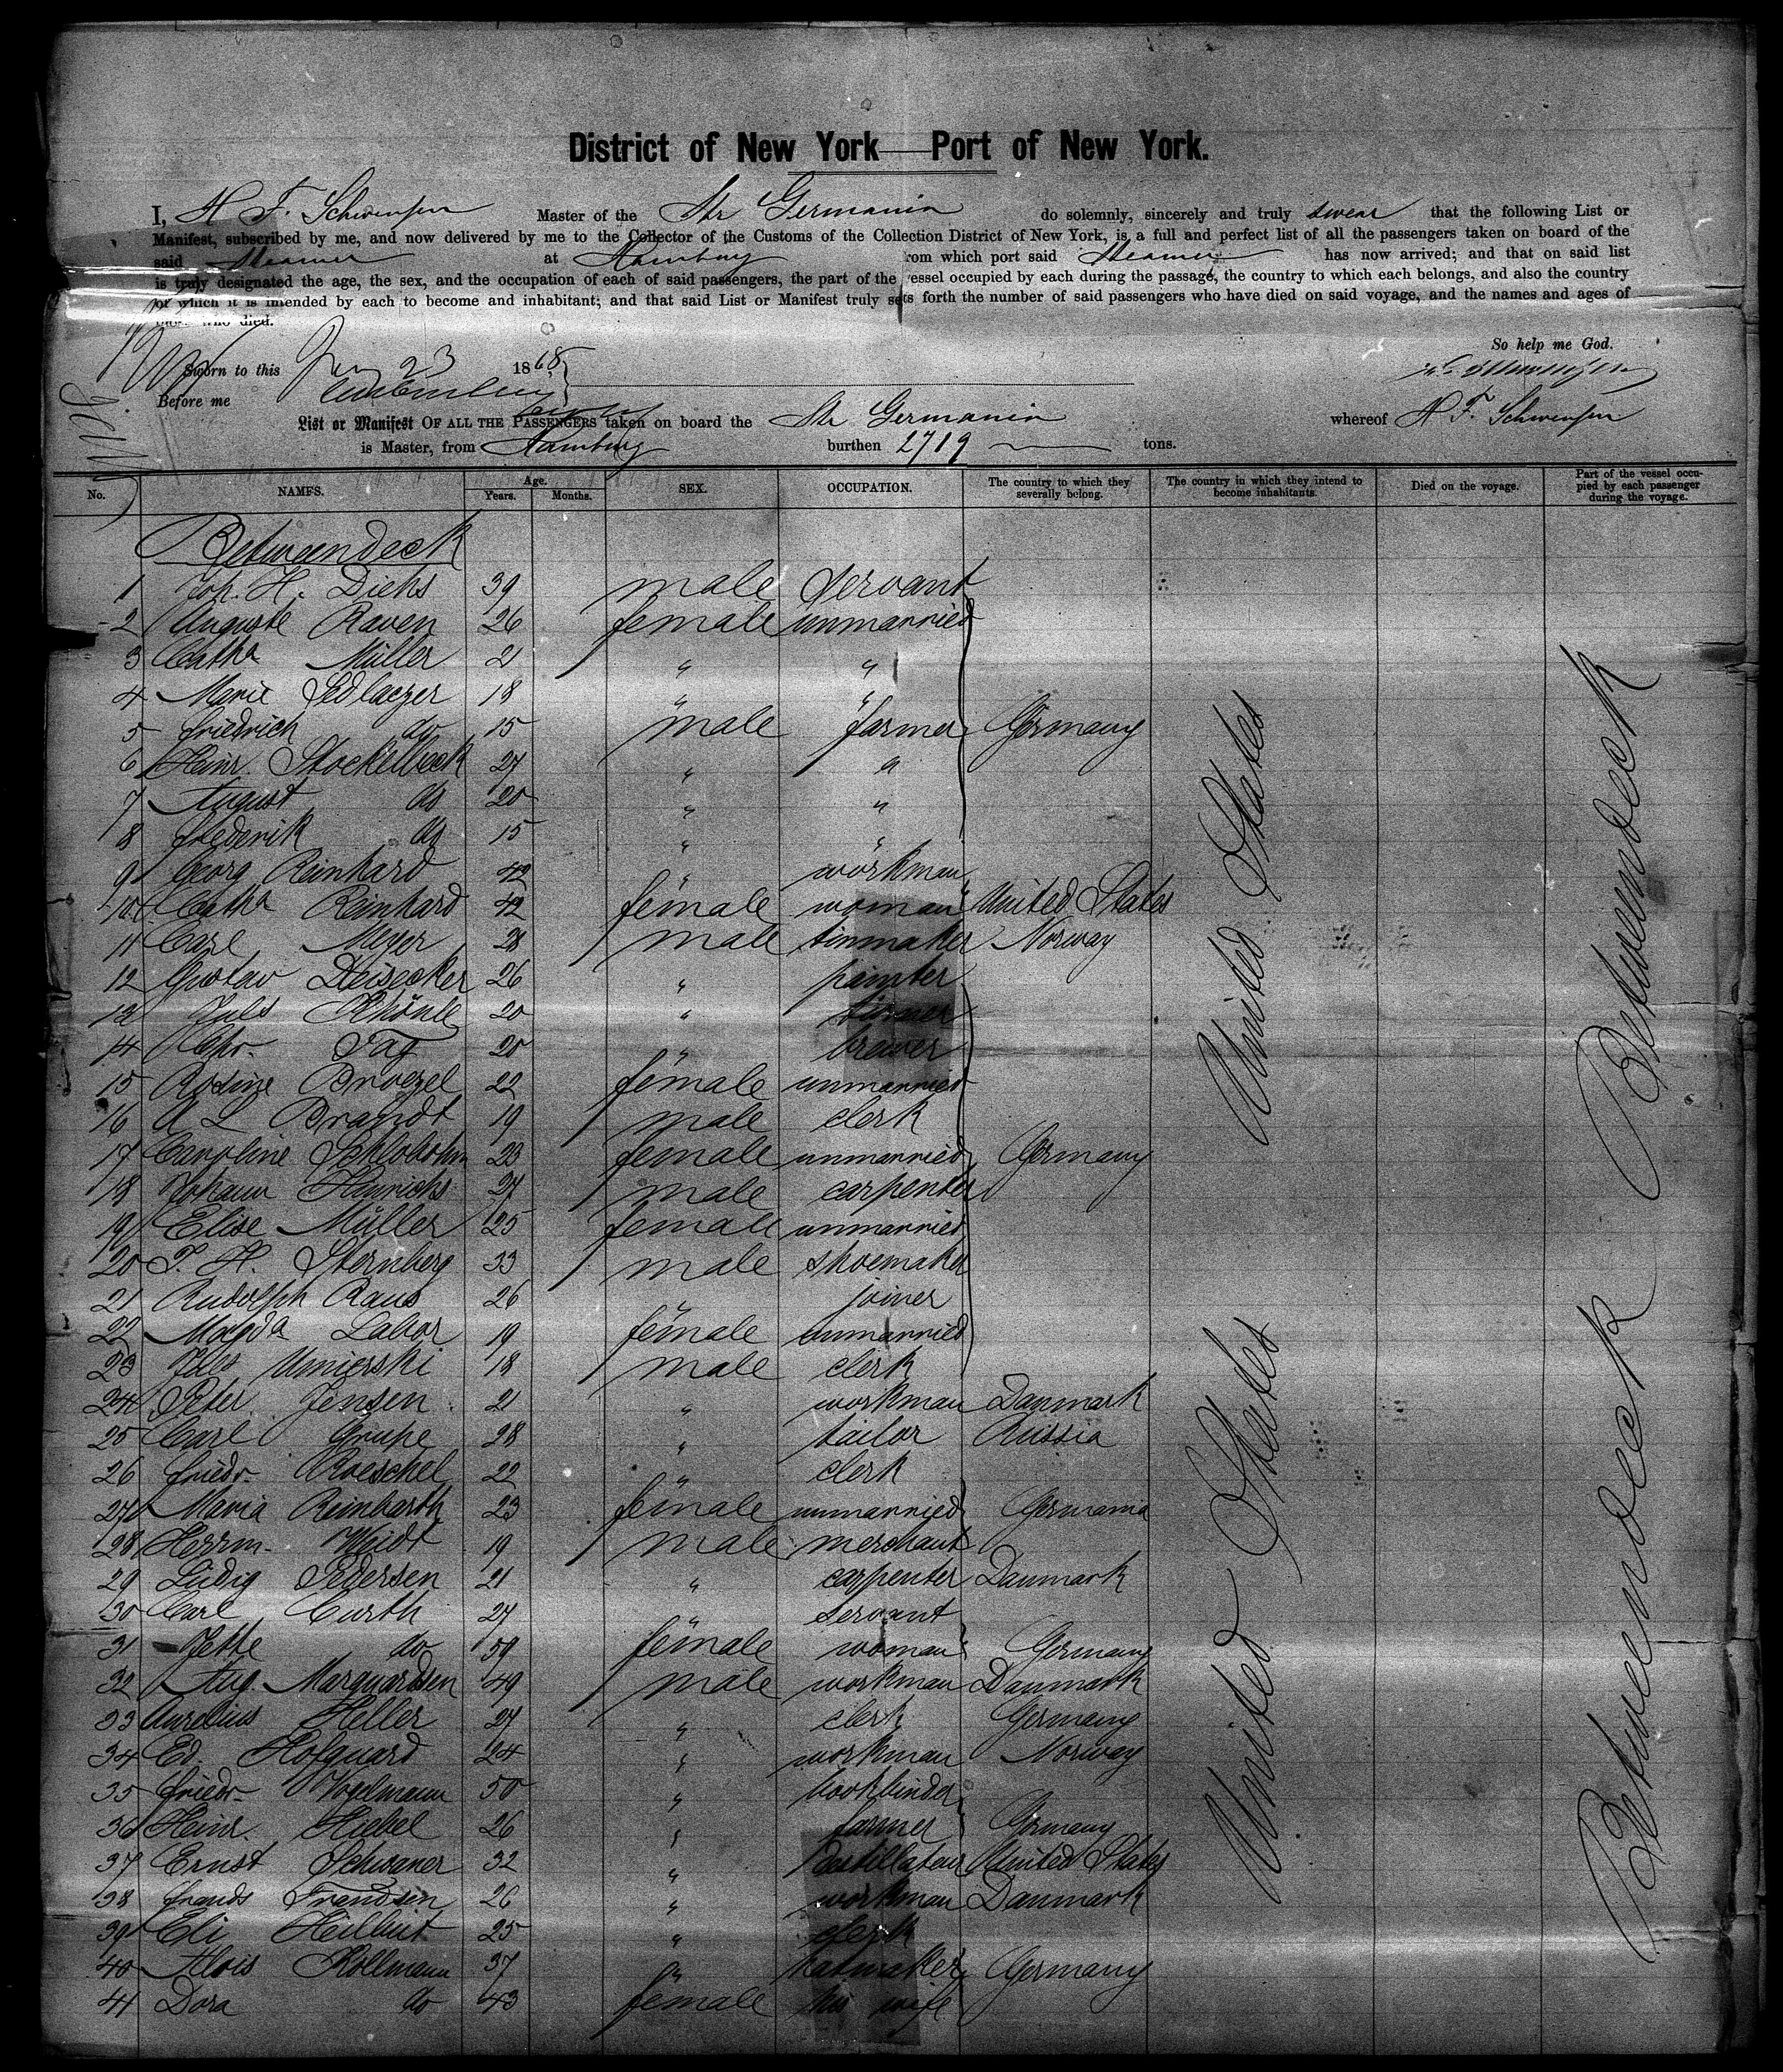 District of New York—Port of New York.
I, H. F. Schwensen Master of the Str Germania do solemnly, sincerely and truly swear that the following List or
Manifest, subscribed by me, and now delivered by me to the Collector of the Customs of the Collection District of New York, is a full and perfect list of all the passengers taken on board of the
said Steamer at Hamburg from which port said Steamer has now arrived; and that on said list
is truly designated the age, the sex, and the occupation of each of said passengers, the part of the vessel occupied by each during the passage, the country to which each belongs, and also the country
of which it is intended by each to become and inhabitant; and that said List or Manifest truly sets forth the number of said passengers who have died on said voyage, and the names and ages of
those who died.
So help me God.
Sworn to this 23 1868
Before me
List or Manifest OF ALL THE PASSENGERS taken on board the Str Germania whereof H. F. Schwensen
is Master, from Hamburg burthen 2719 tons.
No. NAMES. Age. Years. Months. SEX. OCCUPATION. The country to which they severally belong. The country in which they intend to become inhabitants. Died on the voyage. Part of the vessel occupied by each passenger during the voyage.
Betweendeck
1 Joh. H. Dieks 39 male servant
2 Auguste Raven 26 female unmarried
3 Catha Müller 21 " "
4 Marie Sedlaczer 18 " "
5 Friedrich do 15 male farmer Germany
6 Heinr. Stockelbeck 27 " "
7 August do 20 " "
8 Frederik do 15 " "
9 Georg Reinhard 42 " workman
10 Catha Reinhard 42 female woman United States
11 Carl Meyer 28 male tinmaker Norway
12 Gustav Deisecker 26 " painter
13 Juls 20 " turner
14 Chr. Tag 20 " brewer
15 Rosine Broezel 22 female unmarried
16 A L Brandt 19 male clerk
17 Caroline Schlobohm 23 female unmarried Germany
18 Johann Hinrichs 27 male carpenter
19 Elise Müller 25 female unmarried
20 J. H. Sternberg 33 male shoemaker
21 Rudolph Raus 26 " joiner
22 Magda Labor 19 female unmarried
23 Jules Umierski 18 male clerk
24 Peter Jensen 21 " workman Danmark
25 Carl Grupe 28 " tailor Russia
26 Friedr. Roeschel 22 " clerk
27 Maria Reinbarth 23 female unmarried Germania
28 Herrm. Weidt 19 male merchant
29 Lüdig Pedersen 21 " carpenter Danmark
30 Carl Curth 27 " servant
31 Jette do 59 female woman Germany
32 Aug. Marquardsen 49 male workman Danmark
33 Aurelius Heller 27 " clerk Germany
34 Ed. Hofguard 24 " workman Norway
35 Friedr. 50 " bookbinder
36 Heinr. Hiebel 26 " farmer Germany
37 Ernst Schwaner 32 " Destillateur United States
38 Frands Frandsen 26 " workman Danmark
39 Eli Heilbut 25 " clerk
40 Alois Kollmann 37 " hatmaker Germany
41 Dora do 43 female his wife
United States
United States
Betweendeck
Betweendeck